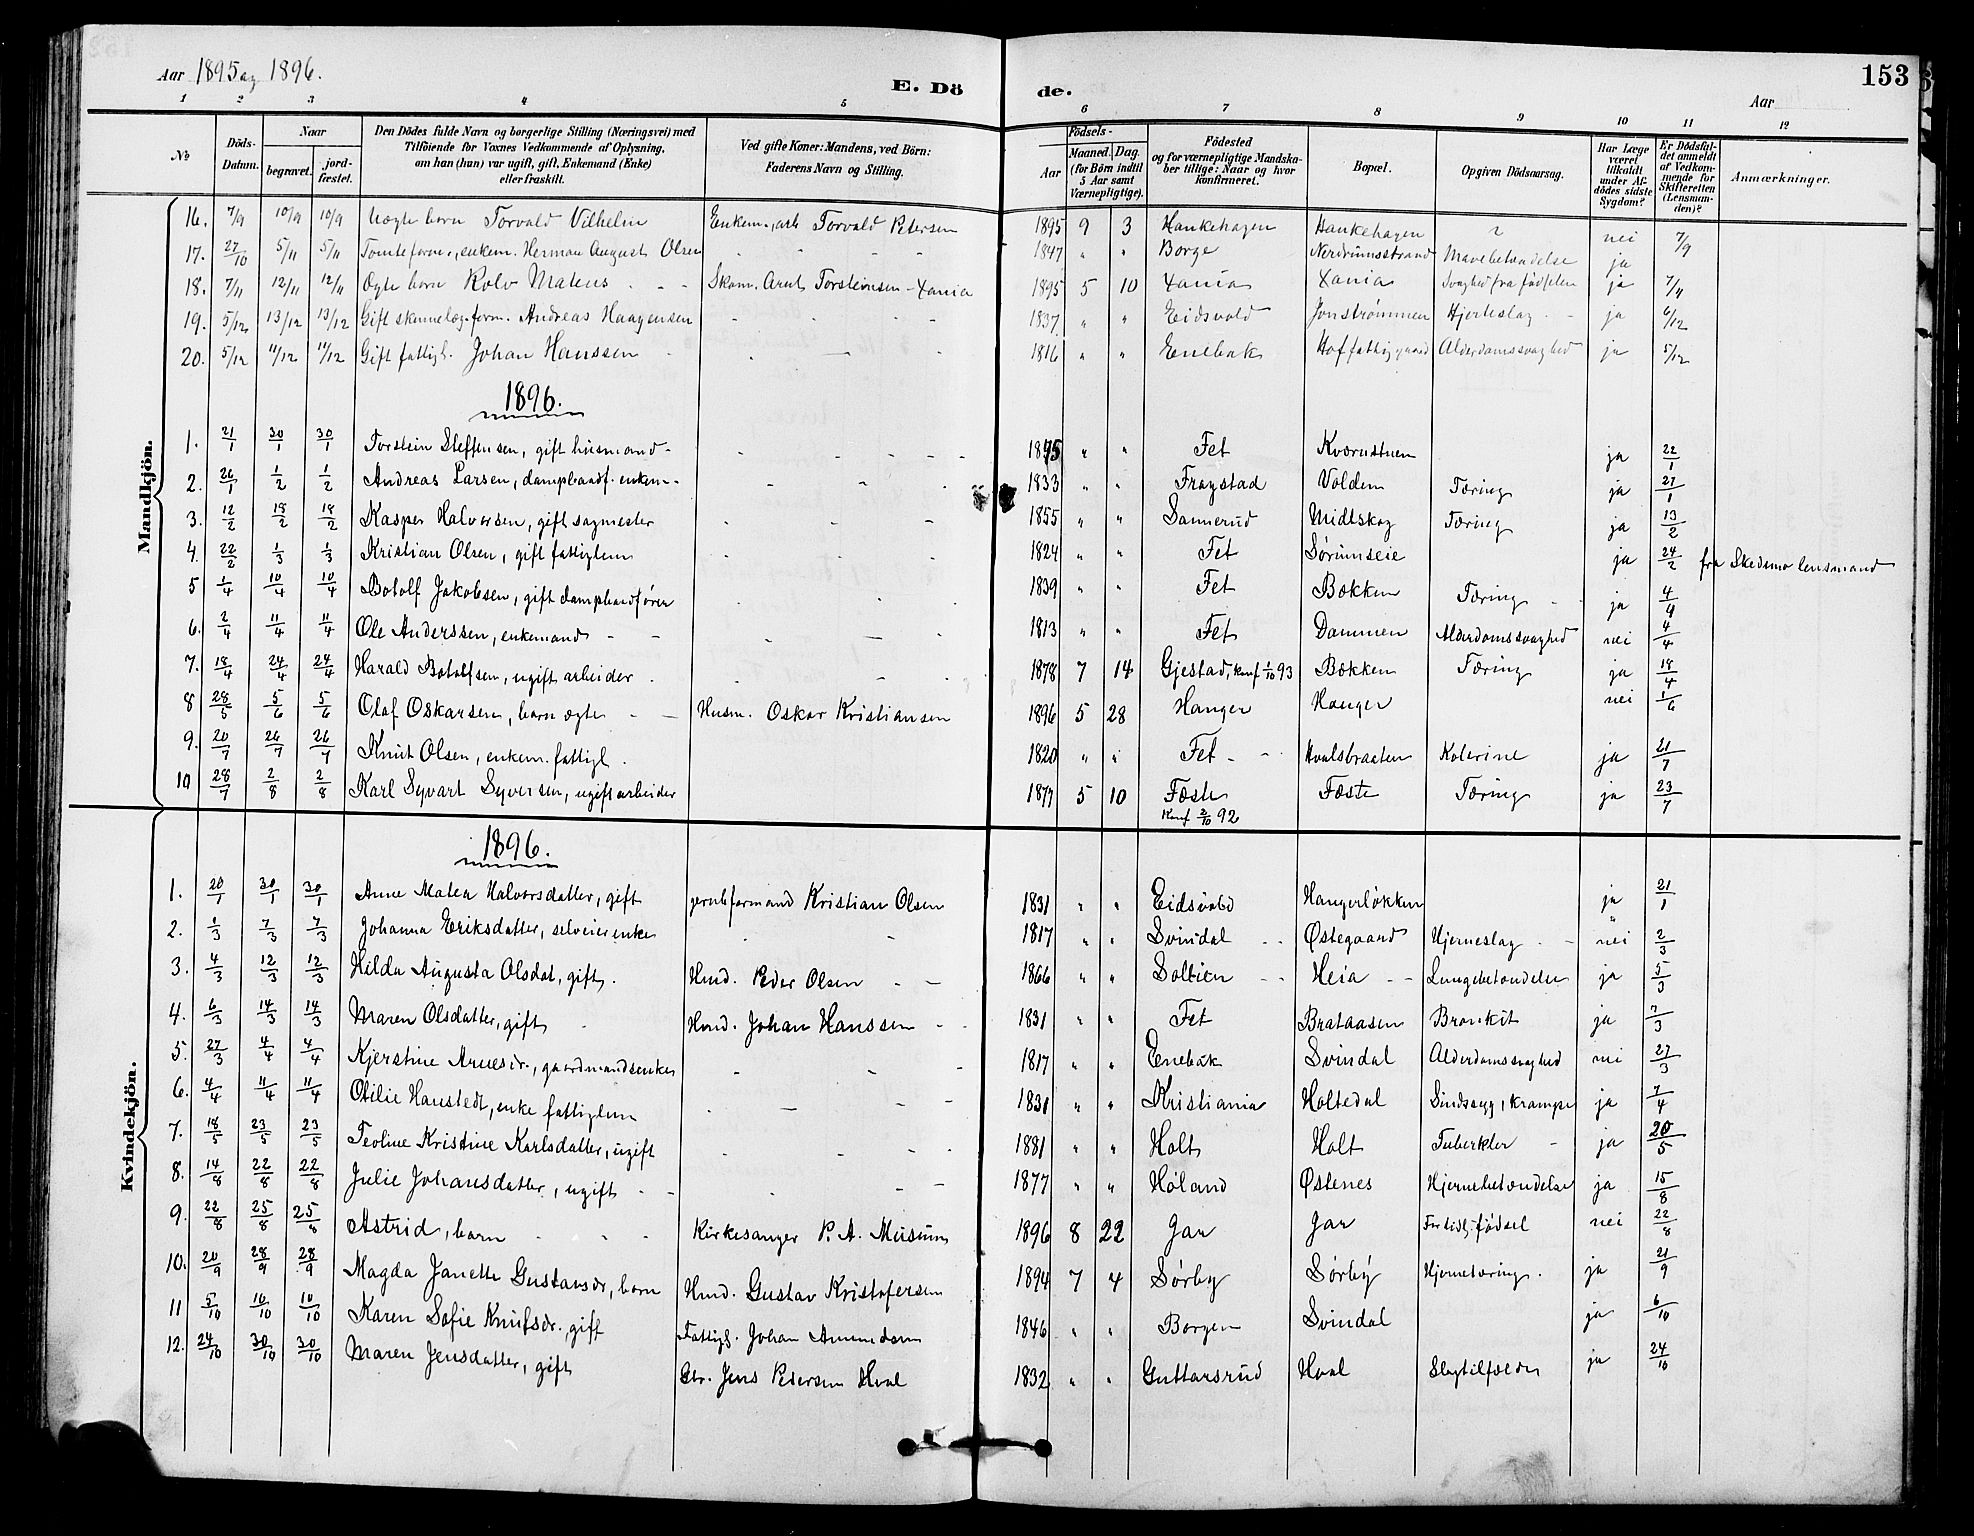 Aar 1895 og 1896. E. Döde. Aar 153
1 2 3 4 5 6 7 8 9 10 11 12
No
Döds-Datum.
Naar
begravet. jord-fæstet.
Den Dödes fulde Navn og borgerlige Stilling (Næringsvei) med
Tilföiende for Voxnes Vedkommende af Oplysning,
om han (hun) var ugift, gift, Enkemand (Enke)
eller fraskilt.
Ved gifte Koner: Mandens, ved Börn:
Faderens Navn og Stilling.
Födsels-
Aar Maaned. Dag.
(for Börn indtil
5 Aar samt
Værnepligtige).
Födested
og for værnepligtige Mandska-
ber tillige: Naar og hvor
konfirmeret.
Bopæl.
Opgiven Dödsaarsag.
Har Læge
været
tilkaldt
under Af-
dödes sidste
Sygdom?
Er Dödsfal-
det anmeldt
af Vedkom-
mende for
Skifteretten
(Lensman-
den)?
Anmærkninger.
Mandkjön.
16. 7/9 10/9 10/9 Uægte barn Torvald Vilhelm Enkem., arb Torvald Petersen 1895 9 3 Hankehagen Hankehagen nei 7/9
17. 27/10 5/11 5/11 Tomteform., enkem. Herman August Olsen 1847 " " Borge Nerdrumsstrand Mavebetændelse ja
18. 7/11 12/11 12/11 Ægte barn Rolv Mateus Skom. Arnt Torsteinsen - Xania 1895 5 10 Xania Xania Svaghed fra fødselen ja 7/11
19. 5/12 13/12 13/12 Gift Andreas Haagensen 1837 " " Eidsvold Jonstrømmen Hjerteslag ja 6/12
20. 5/12 11/12 11/12 Gift fattigl. Johan Hanssen 1816 " " Enebak Hof fattiggaard Alderdomssvaghed ja 5/12
1896.
1. 21/1 30/1 30/1 Torstein Steffensen, gift husmand 18 " " Fet Kværnstuen ja 22/1
2. 26/1 1/2 1/2 Andreas Larsen, dampbaadf. enkem. 1833 " " Frogstad Volden Tæring ja 27/1
3. 12/2 18/2 18/2 Kasper Halvorsen, gift sagmester 1855 " " Sannerud Midtskog Tæring ja 13/2
4. 22/2 1/3 1/3 Kristian Olsen, gift fattiglem 1824 " " Fet Sørumseie ja 24/2 fra Skedsmo lensmand
5 1/4 10/4 10/4 Botolf Jakobsen, gift dampbaadfører 1839 " " Fet Bækken Tæring ja 4/4
6. 2/4 11/4 11/4 Ole Anderssen, enkemand 1813 " " Fet Dammen Alderdomssvaghed nei 4/4
7. 18/4 24/4 24/4 Harald Botolfsen, ugift arbeider 1878 7 14 Gjestad, konf 1/10 93 Bækken Tæring ja 18/4
8 28/5 5/6 5/6 Olaf Oskarsen, barn ægte Husm. Oskar Kristiansen 1896 5 28 Hanger Hanger nei 1/6
9. 20/7 26/7 26/7 Knut Olsen, enkem. fattigl. 1820 " " Fet Hvalsbraaten Kolerine ja 21/7
10 28/7 2/8 2/8 Karl Syvart Syversen, ugift arbeider 1877 5 10 Fæste Fæste Tæring ja 23/7
Konf 2/10 92
Kvindekjön.
1896.
1. 20/1 30/1 30/1 Anne Matea Halvorsdatter, gift Kristian Olsen 1831 " " Eidsvold Hangerløkken ja 21/1
2. 1/3 7/3 7/3 Johanna Eriksdatter, selveierenke 1817 " " Svindal Østegaard Hjerneslag nei 2/3
3. 4/3 12/3 12/3 Hilda Augusta Olsdat., gift. Hmd. Peder Olsen 1866 " " Heia Lungebetændelse ja 5/3
4. 6/3 14/3 14/3 Maren Olsdatter, gift Hmd. Johan Hanssen 1831 " " Fet Brataasen Bronkit ja 7/3
5. 27/3 4/4 4/4 Kjerstine Arnesdr., gaardmandsenke 1817 " " Enebak Svindal Alderdomssvaghed nei 27/3
6. 4/4 11/4 11/4 Otilie Hanstedt, enke fattiglem 1831 " " Kristiania Holtedal Sindssyg, krampe ja 7/4
7. 18/5 23/5 23/5 Teoline Kristine Karlsdatter, ugift 1881 " " Holt Holt Tuberkler ja 20/5
8. 14/8 22/8 22/8 Julie Johansdatter, ugift 1877 " " Høland Østenes Hjernebetændelse ja 15/8
9. 22/8 25/8 25/8 Astrid, barn Kirkesanger P. A. Musum 1896 8 22 Jar Jar For tidl. fødsel nei 22/8
10. 20/9 28/9 28/9 Magda Janette Gustavsdr, barn Hmd. Gustav Kristofersen 1894 7 4 Sørby Sørby Hjernetæring. ja 21/9
11 5/10 10/10 10/10 Karen Sofie Knutsdr., gift Fattigl. Johan Amundsen 1846 " " Borgen Svindal ja 6/10
12. 24/10 30/10 30/10 Maren Jensdatter, gift Gbr. Jens Petersen Hval 1832 " " Guttorsrud Hval Slagtilfælde ja 24/10